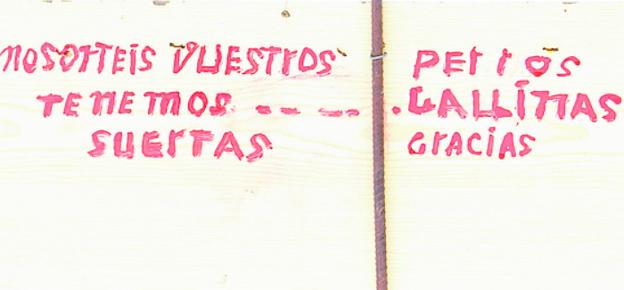 NO SOTTEIS VUESTROS PERROS
TENEMOS ----- .GALLINAS
SUERTAS GRACIAS